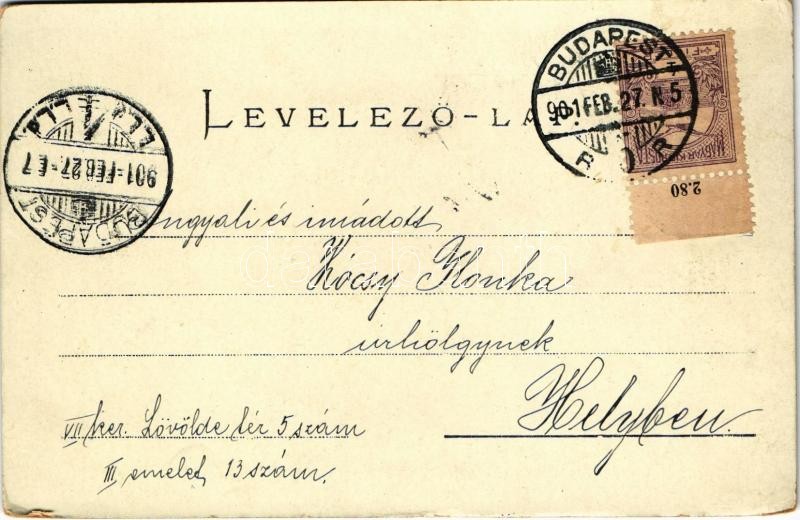 BUDAPEST
901 FEB. 27. N 5
MAGYAR KIR. POSTA
2.80
LEVELEZŐ-LA
901-FEB.27-E 7
BUDAPEST
Angyali és imádott
Kócsy Ilonka
úrhölgynek
Helyben.
VII ker. Lövölde tér 5 szám
III emelet, 13 szám.